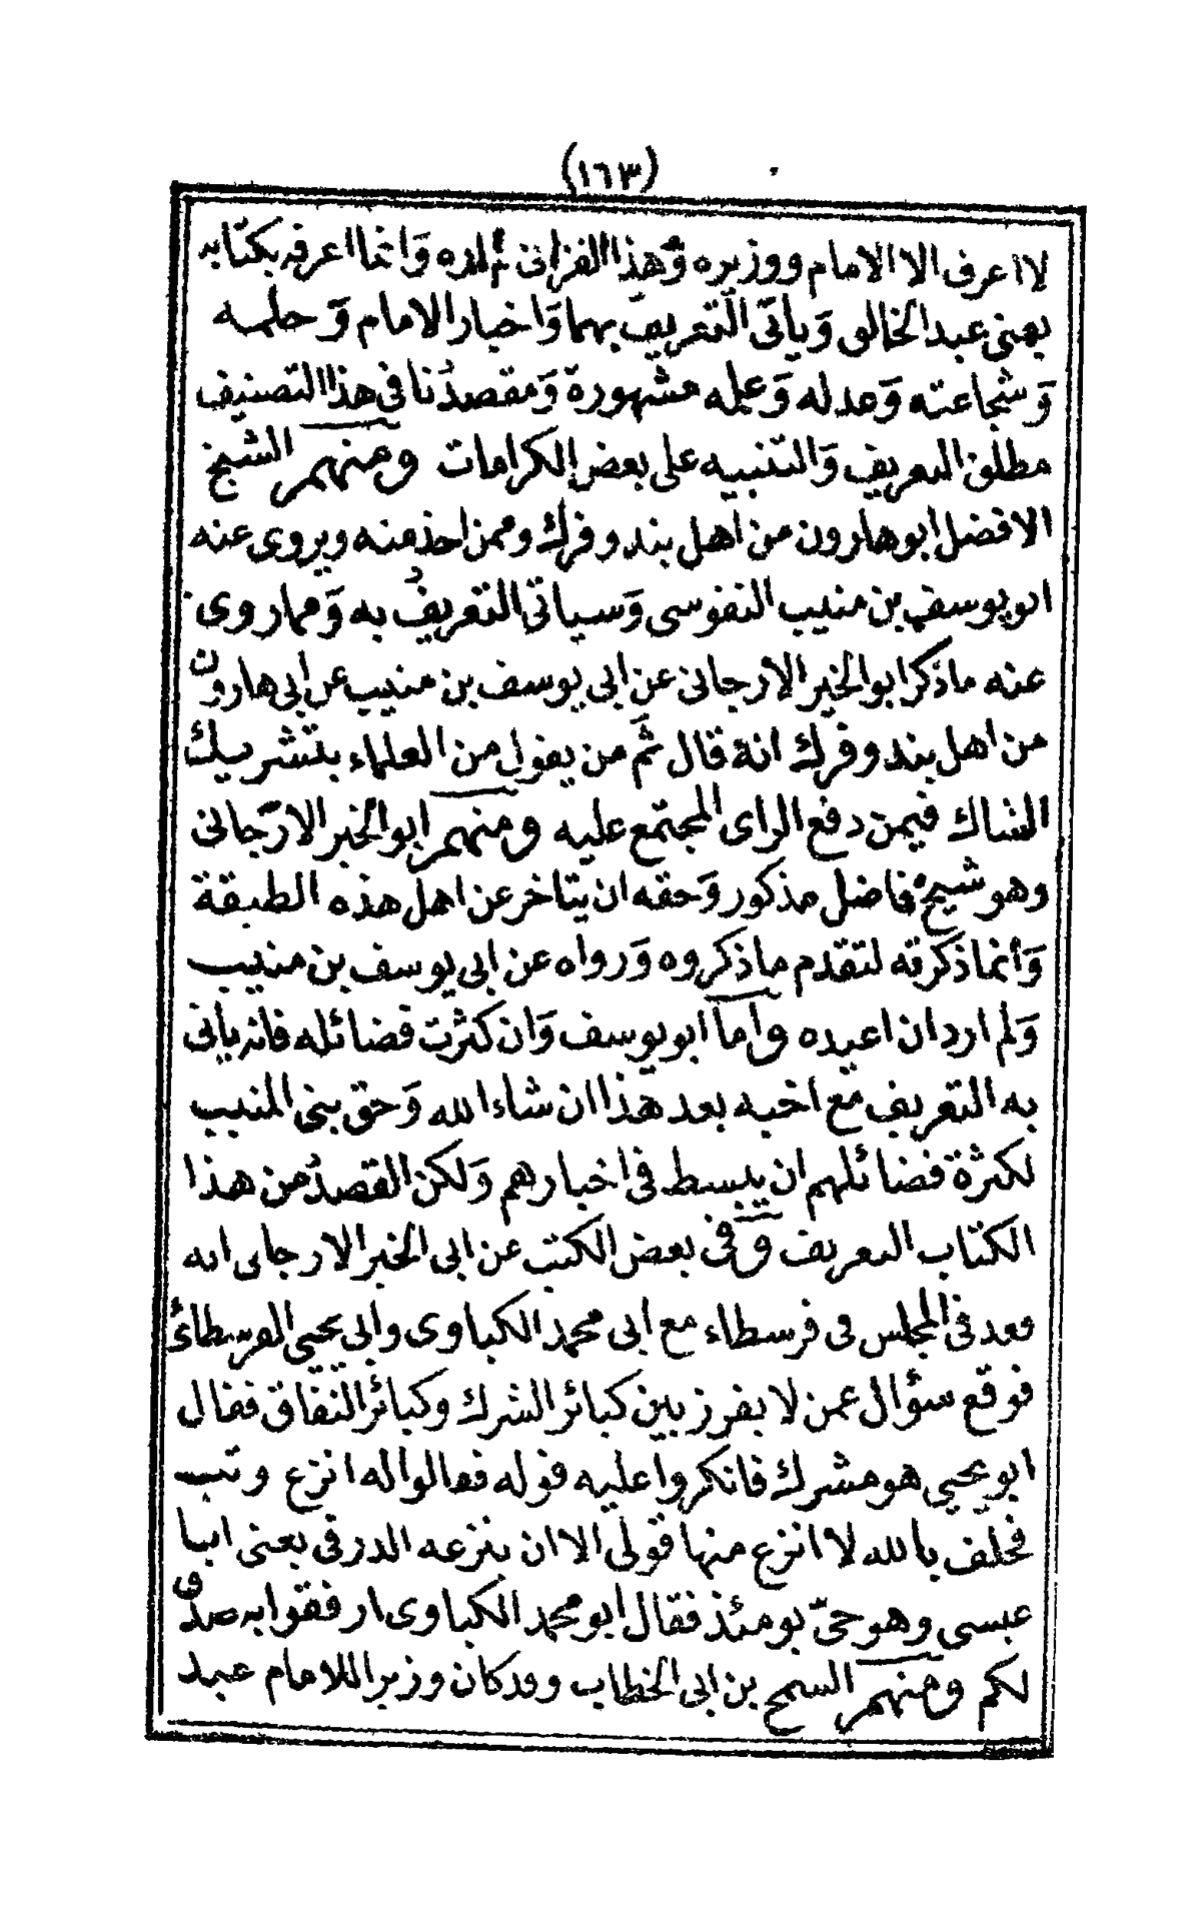 (١٦٣)
لا اعرف الا الامام ووزيره وهذا الفزانى لم اره وانما اعرفه بكتابه
يعنى عبد الخالق وَياتى التعريف بهما وَاخبار الامام وَحلمه
وَشجاعته وَعدله وَعلمه مشهورة وَمقصدُنا فى هذا التصنيف
مطلق التعريف وَالتنبيه على بعض الكرامات ومنهم الشيخ
الافضل ابو هارون من اهل بندوفرك وممن اخذ منه ويروى عنه
ابو يوسف بن منيب النفوسى وَسياتى التعريفُ به وَمما روى
عنه ماذكر ابو الخير الارجانى عن ابى يوسف بن منيب عن ابى هارون
من اهل بندوفرك انهُ قال ثَم من يقول من العلماء بتشريك
الشاك فيمن دفع الراى المجتمع عليه ومنهم ابو الخير الارجانى
وهو شيخ فاضل مذكور وَحقه ان يتاخر عن اهل هذه الطبقة
وَانما ذكرته لتقدم ماذكروه وَرواه عن ابى يوسف بن منيب
وَلم ارد ان اعيده واما ابو يوسف وَان كثرت فضائله فانه ياتى
به التعريف مع اخيه بعد هذا ان شاء الله وَحق بنى المنيب
لكثرة فضائلهم ان يبسط فى اخبارهم وَلكن القصدُ من هذا
الكتاب التعريف وفى بعض الكتب عن ابى الخير الارجانى انه
قعد فى المجلس فى فرسطاء مع ابى محمد الكباوى وابى يحيى الفرسطائى
فوقع سؤال عمن لا يفرز بين كبائر الشرك وكبائر النفاق فقال
ابو يحيى هو مشرك فانكروا عليه قوله فقالوا له انزع وتب
فحلف بالله لا انزع منها قولى الا ان ينزعه الدرفى يعنى ابا
عيسى وهو حىّ يومئذ فقال ابو محمد الكباوى ارفقوا به صدق
لكم ومنهم السمح بن ابى الخطاب وقد كان وزيرا للامام عبد